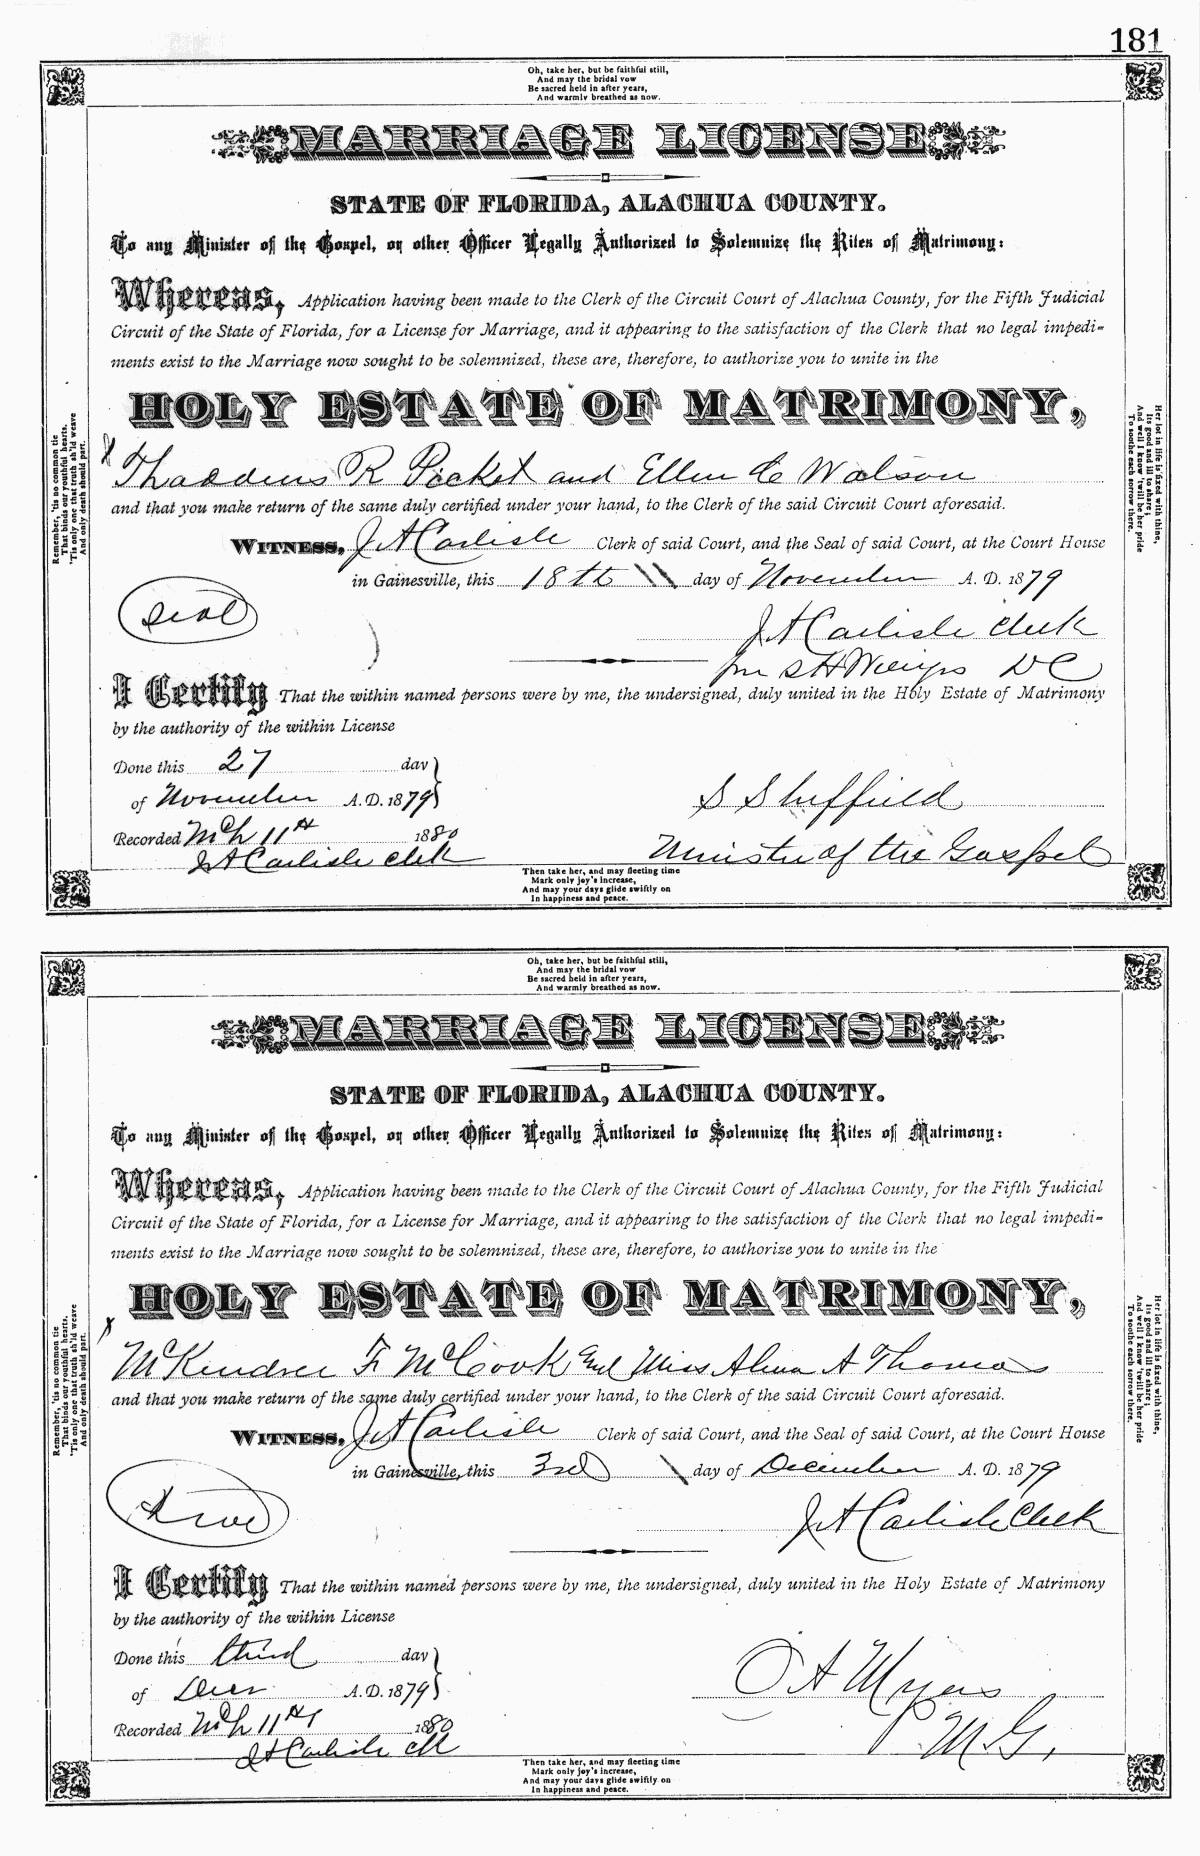 181
Oh, take her, but be faithful still,
And may the bridal vow
Be sacred held in after years,
And warmly breathed as now.
MARRIAGE LICENSE
STATE OF FLORIDA, ALACHUA COUNTY.
To any Minister of the Gospel, or other Officer Legally Authorized to Solemnize the Rites of Matrimony:
Whereas, Application having been made to the Clerk of the Circuit Court of Alachua County, for the Fifth Judicial
Circuit of the State of Florida, for a License for Marriage, and it appearing to the satisfaction of the Clerk that no legal impedi-
ments exist to the Marriage now sought to be solemnized, these are, therefore, to authorize you to unite in the
HOLY ESTATE OF MATRIMONY,
X Thaddeus R Pocket and Ellen C Watson
and that you make return of the same duly certified under your hand, to the Clerk of the said Circuit Court aforesaid.
WITNESS, J A Carlisle Clerk of said Court, and the Seal of said Court, at the Court House
in Gainesville, this 18th day of November A. D. 1879
Seal
J A Carlisle Clerk
S H DC
I Certify That the within named persons were by me, the undersigned, duly united in the Holy Estate of Matrimony
by the authority of the within License
Done this 27 day
of November A.D. 1879
S Sheffield
Recorded Mch 11th 1880
J A Carlisle Clerk
Minister of the Gospel
Then take her, and may fleeting time
Mark only joy's increase,
And may your days glide swiftly on
In happiness and peace.
Remember, 'tis no common tie
That binds our youthful hearts,
'Tis only one that truth sh'ld weave
And only death should part.
Her lot in life is fixed with thine,
Its good and ill to share;
And well I know 'twill be her pride
To soothe each sorrow there.
Oh, take her, but be faithful still,
And may the bridal vow
Be sacred held in after years,
And warmly breathed as now.
MARRIAGE LICENSE
STATE OF FLORIDA, ALACHUA COUNTY.
To any Minister of the Gospel, or other Officer Legally Authorized to Solemnize the Rites of Matrimony:
Whereas, Application having been made to the Clerk of the Circuit Court of Alachua County, for the Fifth Judicial
Circuit of the State of Florida, for a License for Marriage, and it appearing to the satisfaction of the Clerk that no legal impedi-
ments exist to the Marriage now sought to be solemnized, these are, therefore, to authorize you to unite in the
HOLY ESTATE OF MATRIMONY,
X McKendree F McCook and Miss Alma A Thomas
and that you make return of the same duly certified under your hand, to the Clerk of the said Circuit Court aforesaid.
WITNESS, J A Carlisle Clerk of said Court, and the Seal of said Court, at the Court House
in Gainesville, this 3rd day of December A. D. 1879
Seal
J A Carlisle Clerk
I Certify That the within named persons were by me, the undersigned, duly united in the Holy Estate of Matrimony
by the authority of the within License
Done this third day
of Decr A.D. 1879
O A Myers
Recorded Mch 11th 1880
M.G.
J A Carlisle clk
Then take her, and may fleeting time
Mark only joy's increase,
And may your days glide swiftly on
In happiness and peace.
Remember, 'tis no common tie
That binds our youthful hearts,
'Tis only one that truth sh'ld weave
And only death should part.
Her lot in life is fixed with thine,
Its good and ill to share;
And well I know 'twill be her pride
To soothe each sorrow there.